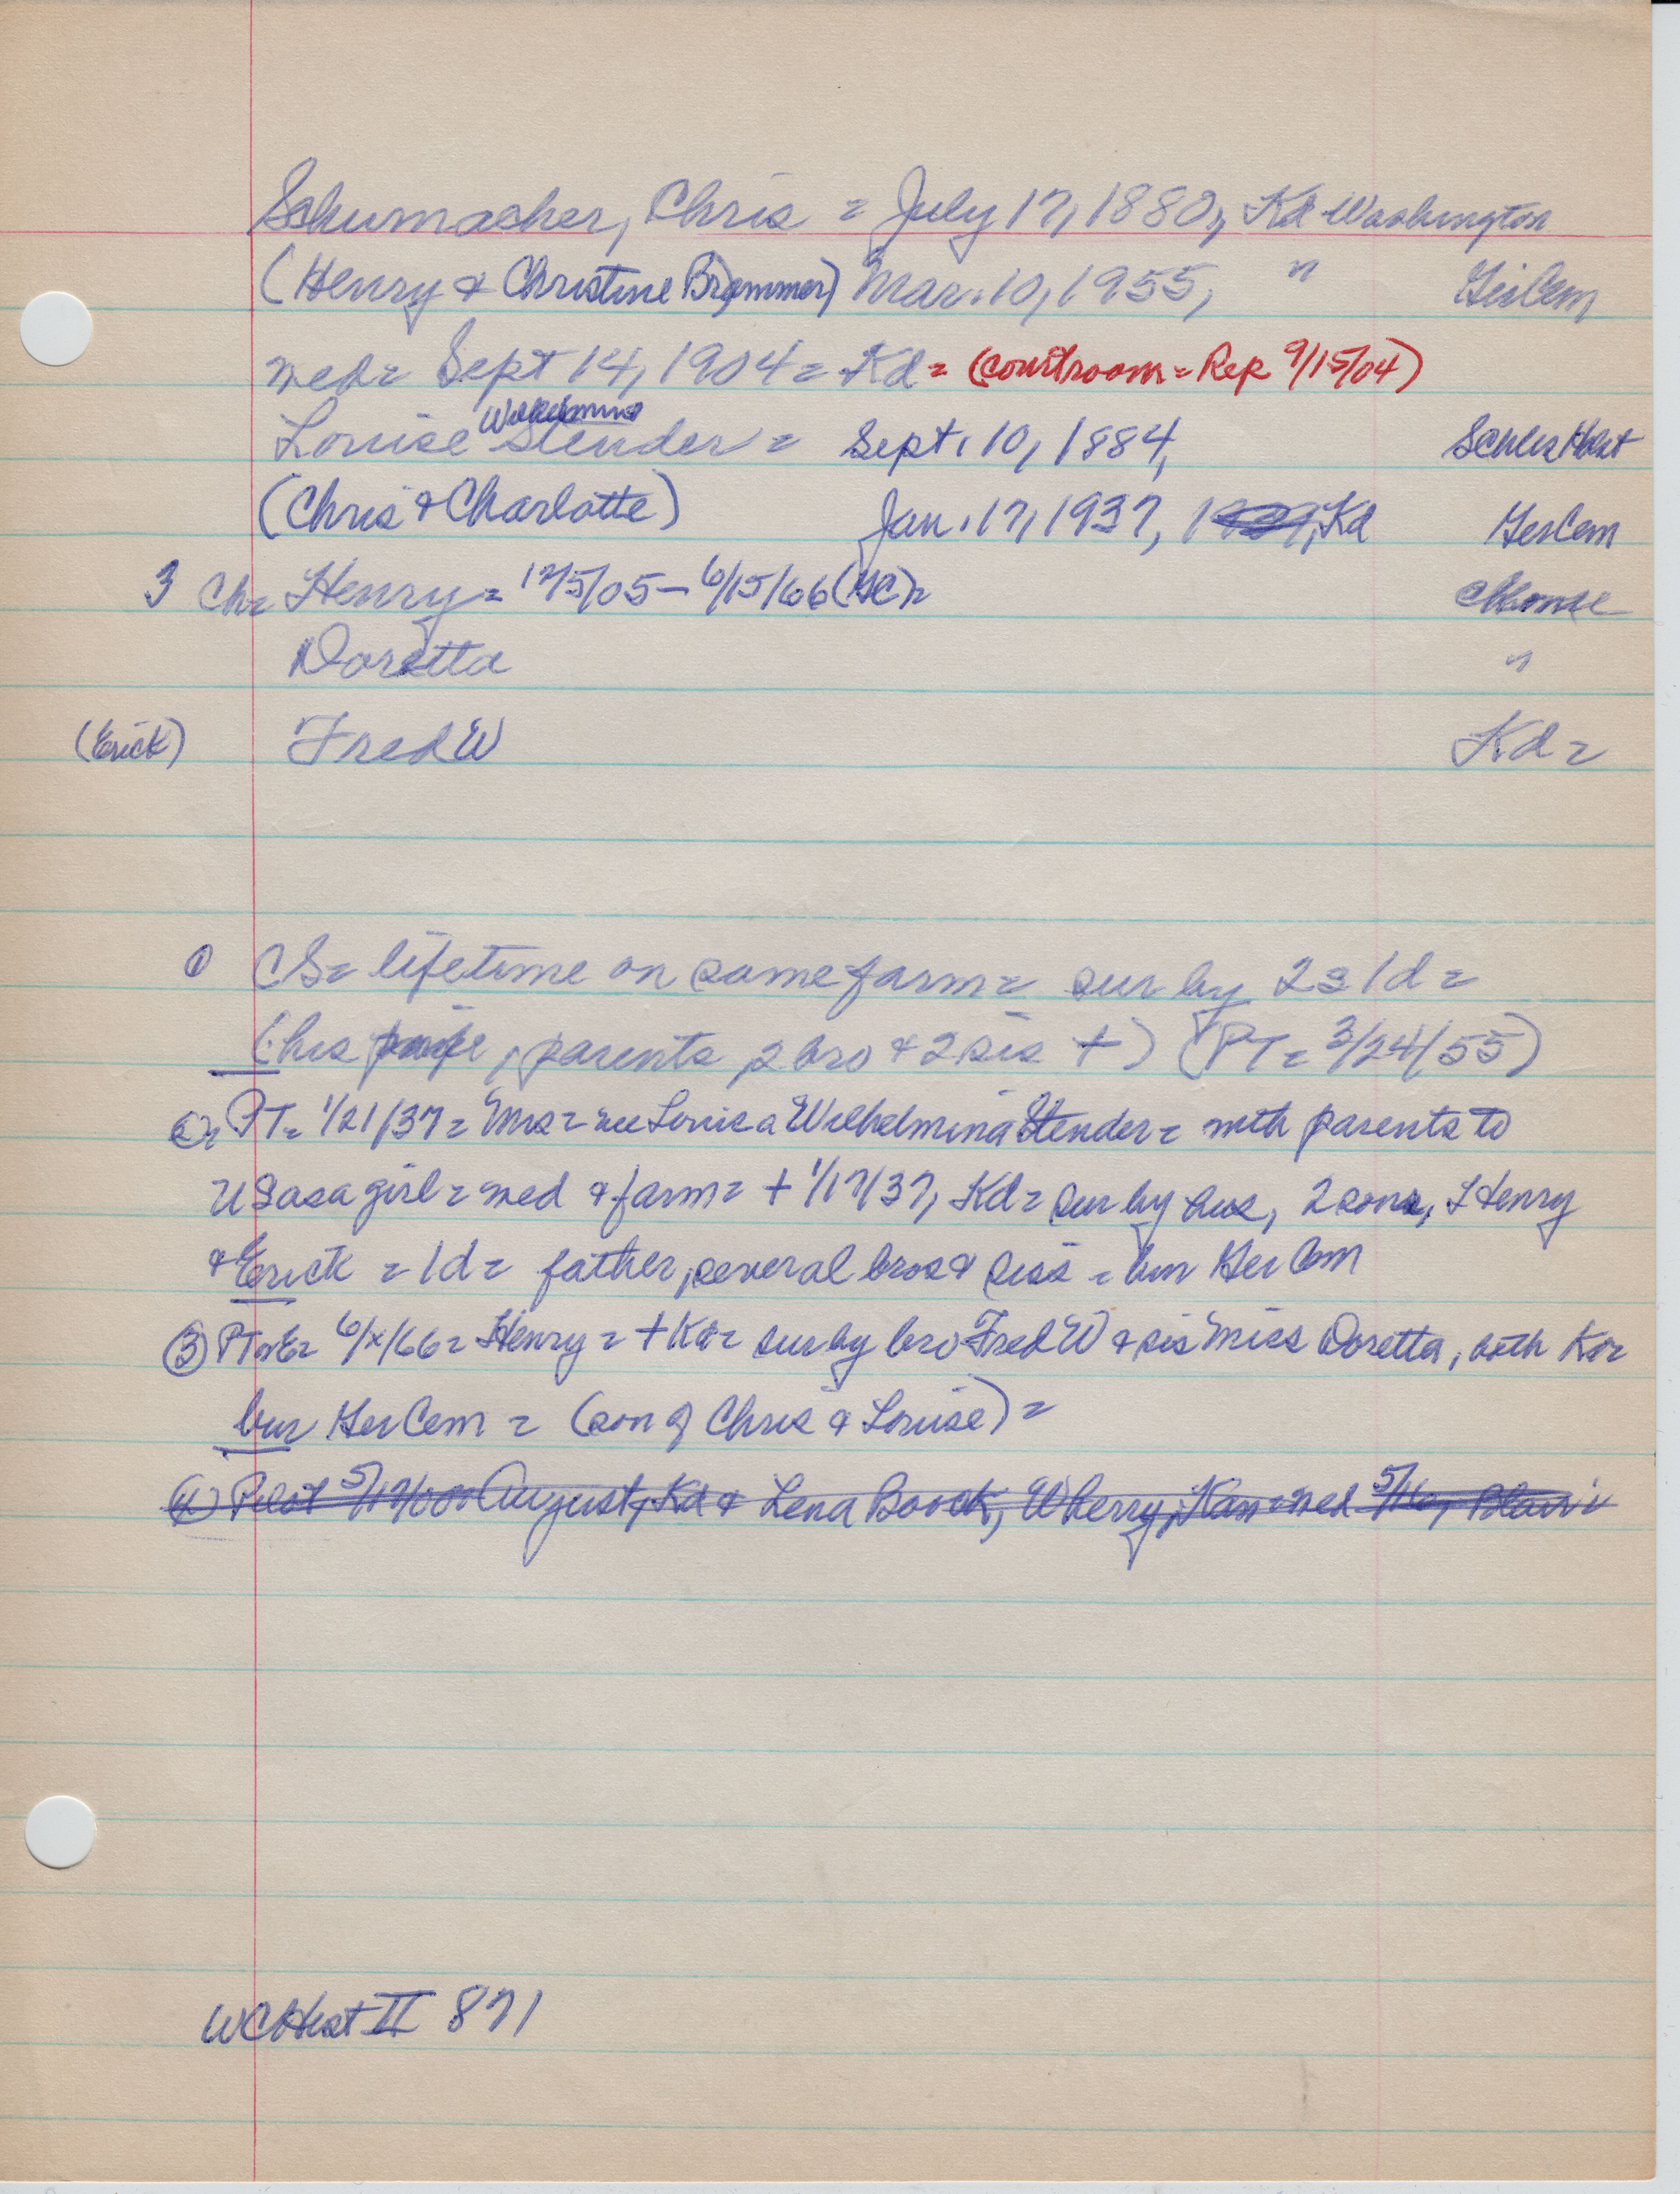 Schumacher, Chris = July 17, 1880, Kd Washington
(Henry & Christine Brammer) Mar. 10, 1955, " GerCem
wed = Sept 14, 1904 = Kd = (courtroom = Rep 9/15/04)
Wilhelmina
Louise Stender = Sept. 10, 1884, SchlesHolst
(Chris & Charlotte) Jan. 17, 1937, Kd GerCem
3 Ch = Henry = 12/5/05 – 6/15/66 (GC) =
Doretta "
(Erick) Fred W Kd =
① CS = lifetime on same farm = sur by 2s 1d =
(his wife, parents, 2 bro & 2 sis +) (PT = 3/24/55)
② = PT = 1/21/37 = Mrs = nee Louisa Wilhelmina Stender = with parents to
US as a girl = wed & farm = + 1/17/37, Kd = sur by hus, 2 sons, Henry
& Erick = 1d = father, several bros & siss = bur Ger Cem
③ PT&E = 6/x/66 = Henry = + Kd = sur by bro Fred W & sis Miss Doretta, both Kd =
bur Ger Cem = (son of Chris & Louise) =
④ Pilot 5/17/00 = August, Kd & Lena Boock, Wherry, Kan = wed 5/16, Blair =
WCHist II 871